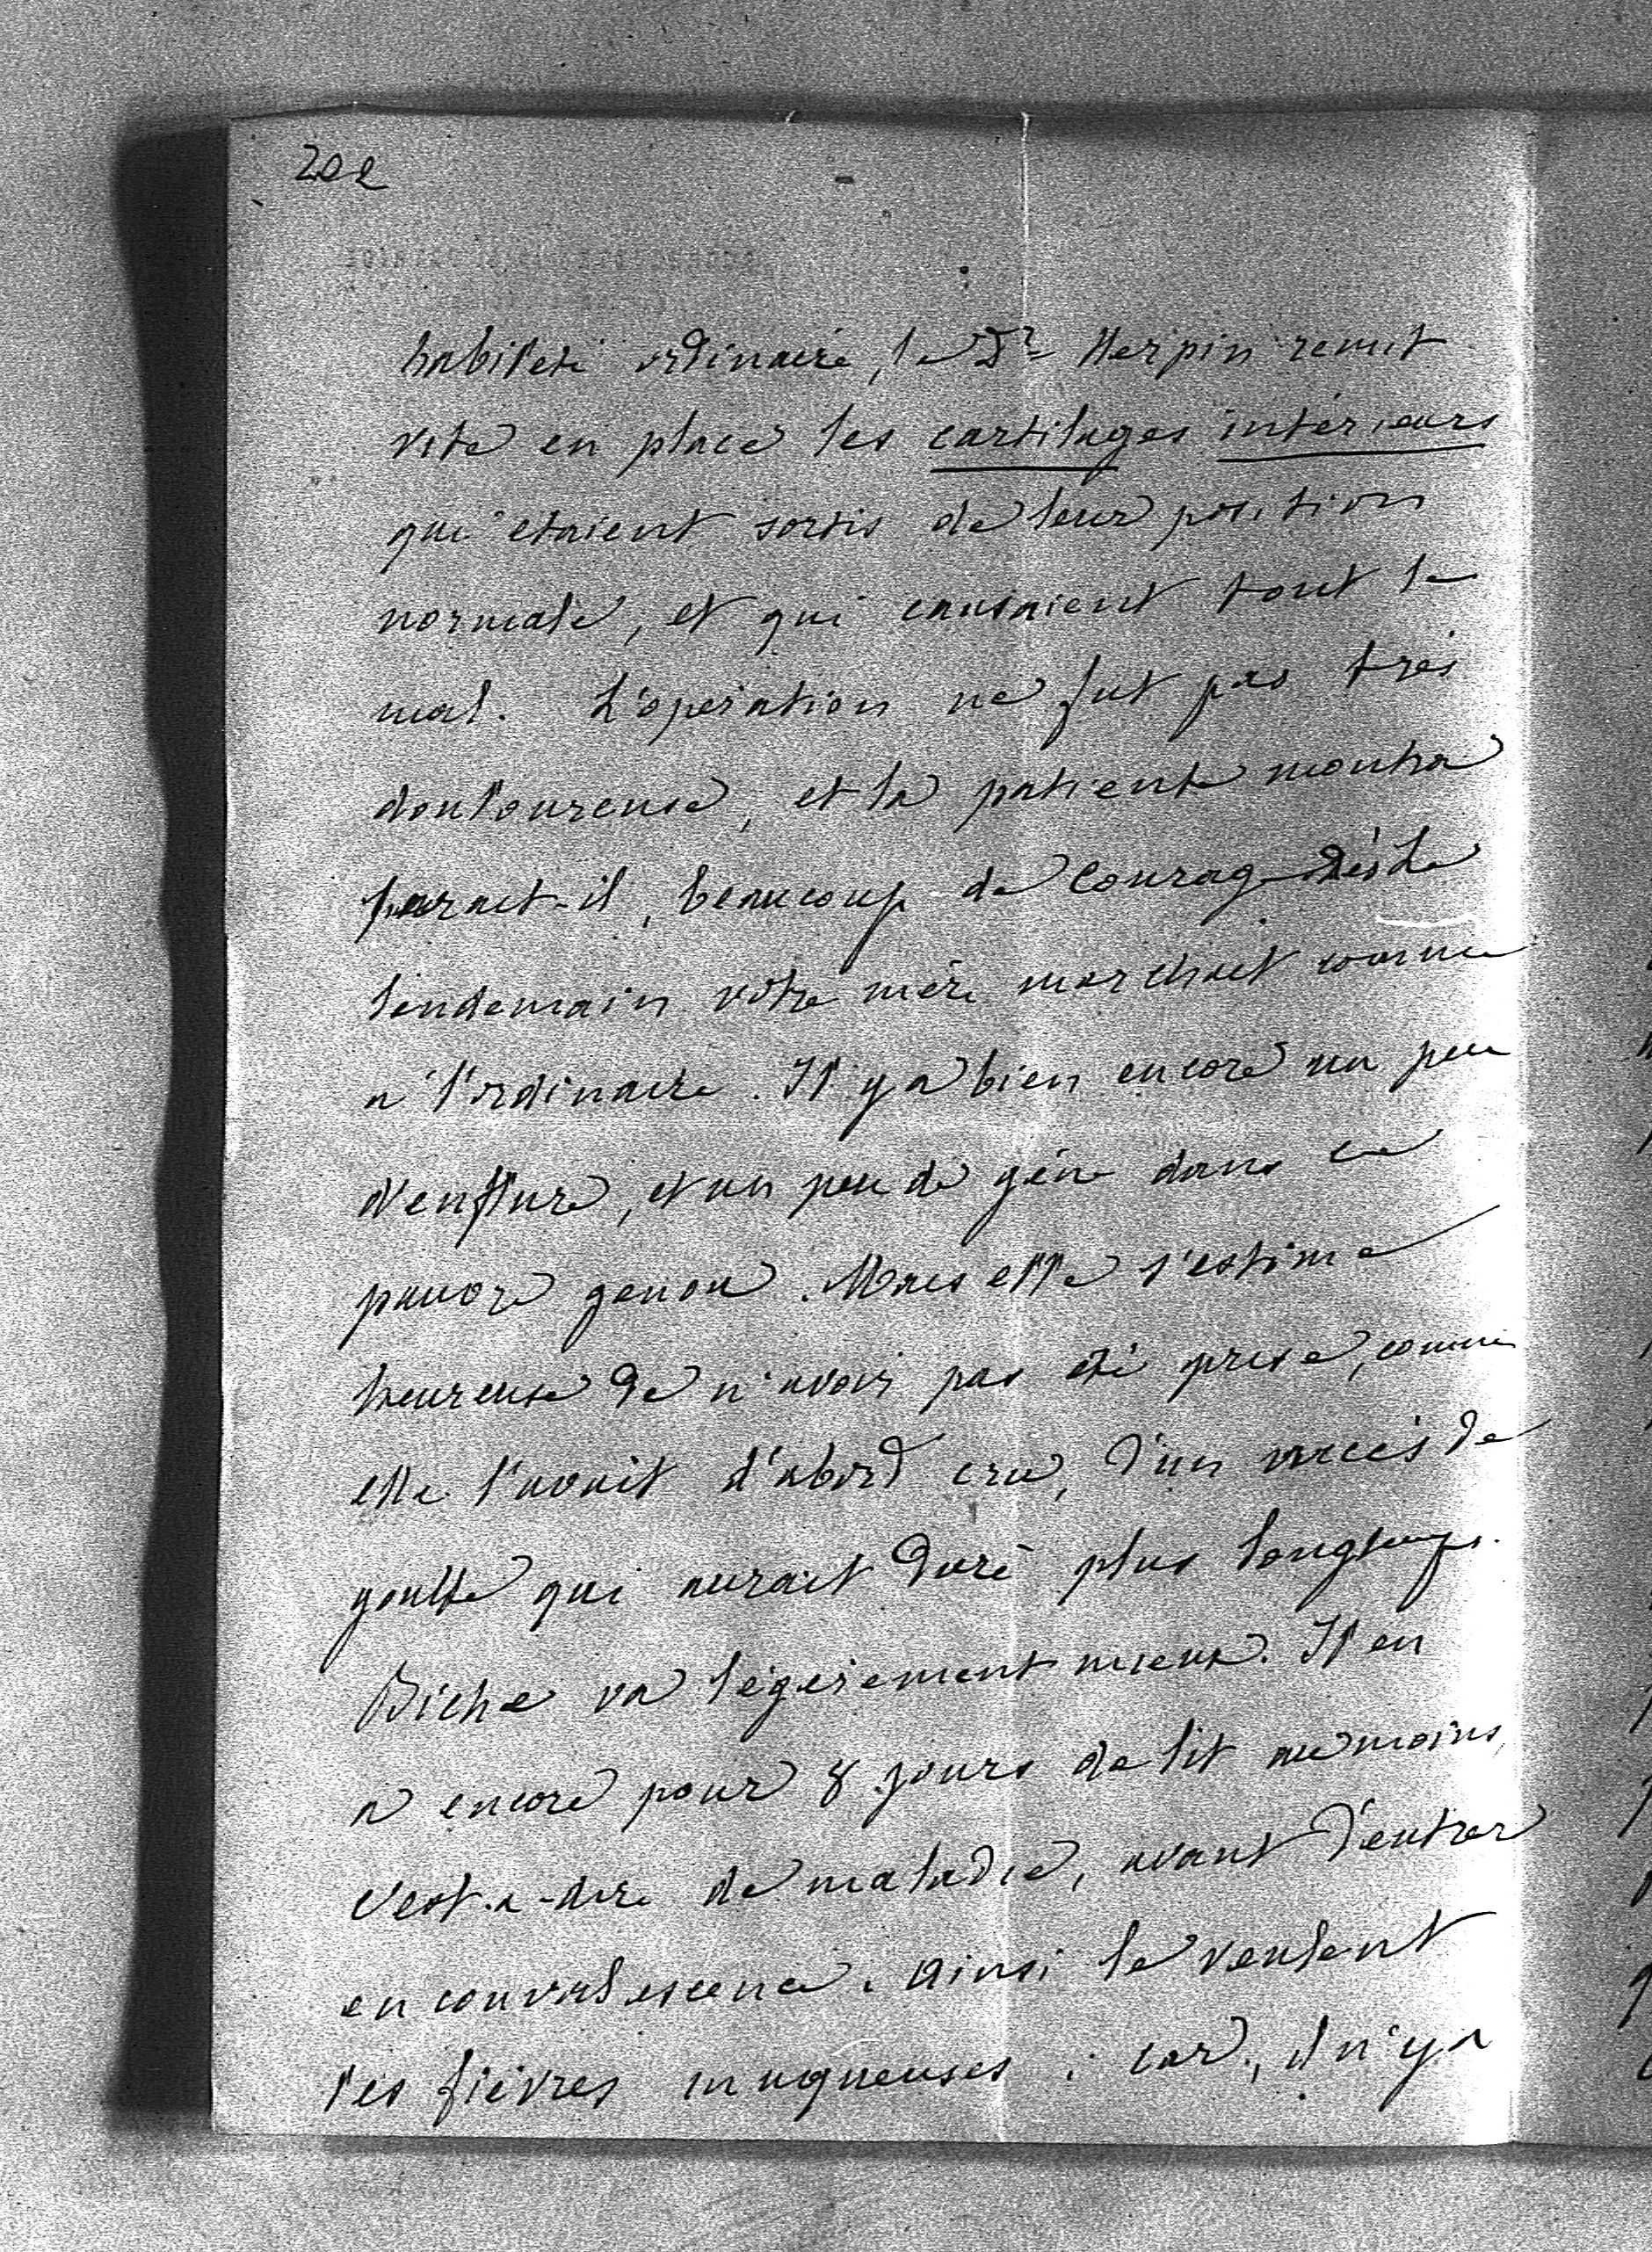 202
habileté ordinaire, le Dr Herpin remit
vite en place les cartilages intérieurs
qui étaient sortis de leur position
normale, et qui causaient tout le
mal. L'opération ne fut pas très
douloureuse, et la patiente montra
paraît-il, beaucoup de courage. Dès le
lendemain votre mère marchait comme
à l'ordinaire. Il y a bien encore un peu
d'enflure, et un peu de gêne dans ce
pauvre genou. Mais elle s'estime
heureuse de n'avoir pas été prise, comme
elle l'avait d'abord cru, d'un accès de
goutte qui aurait duré plus longtemps.
Biche va légèrement mieux. Il en
a encore pour 8 jours de lit au moins,
c'est-à-dire de maladie, avant d'entrer
en convalescence. Ainsi le veulent
les fièvres muqueuses : car, il n'y a